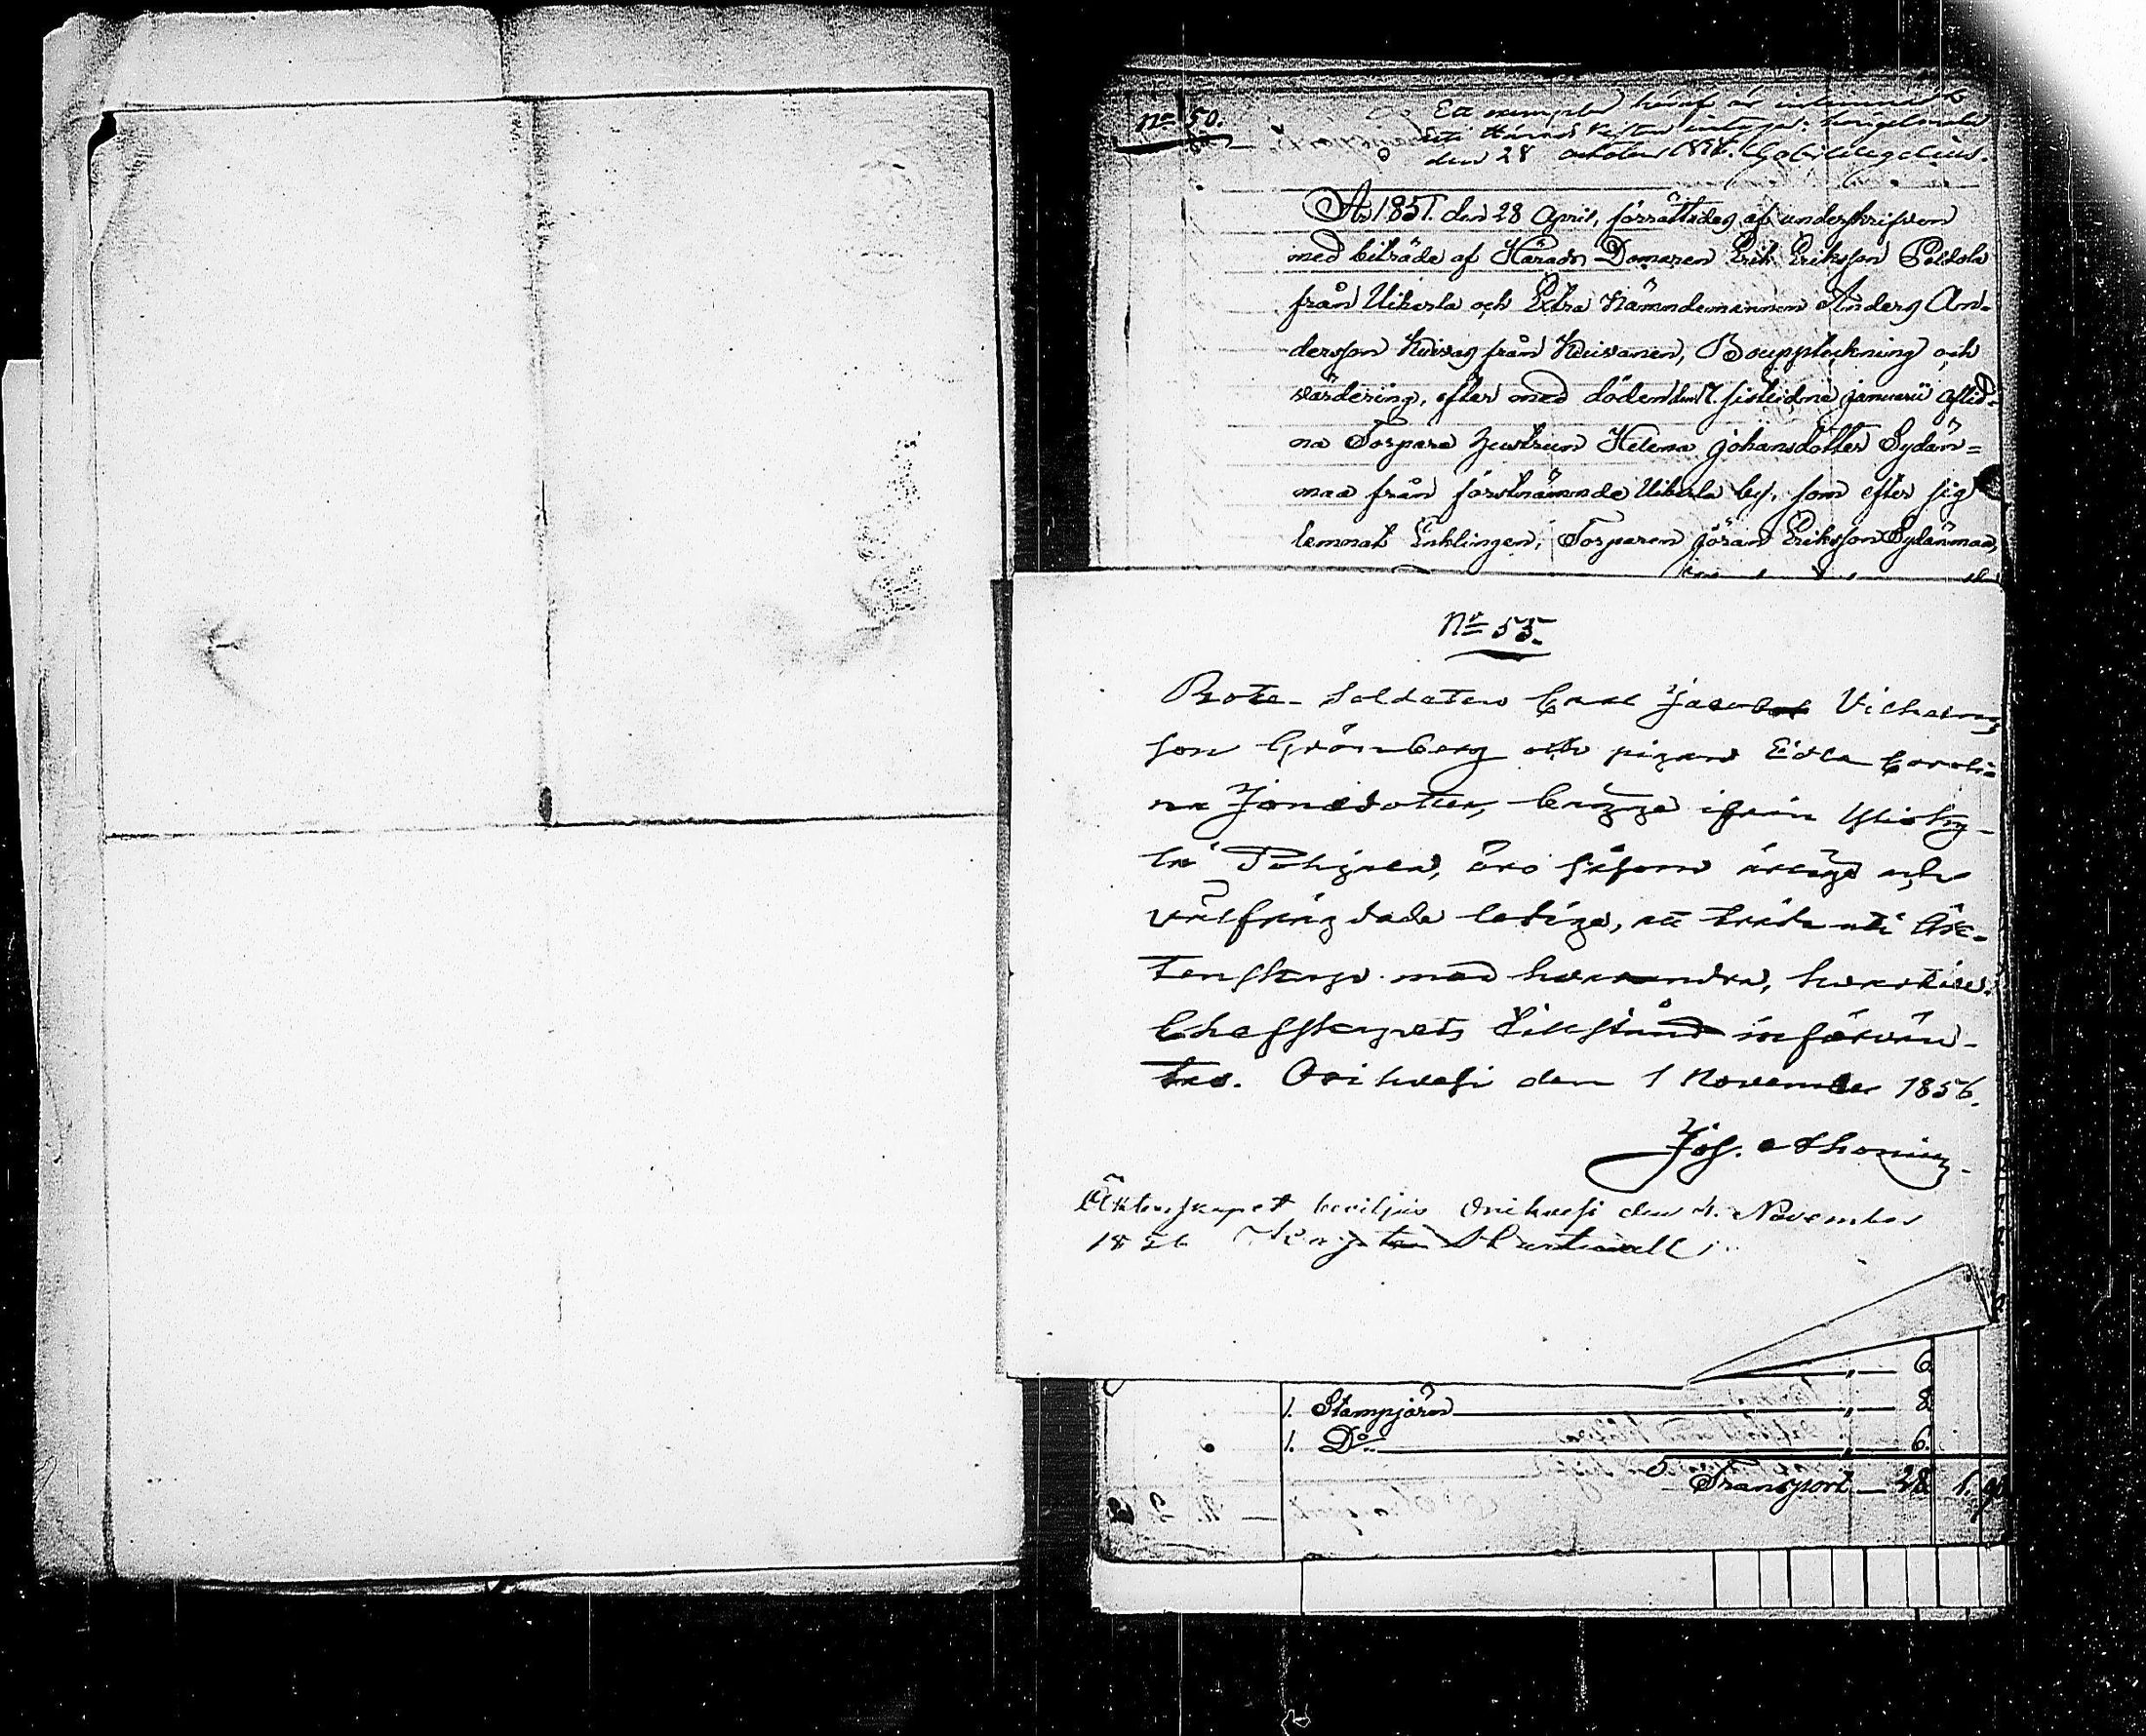 No 50.
Ett exemplar häraf är
den 28 October 1856.
År 1851. den 28 April, förrättades af underskrifven
med biträde af Härads Domaren Erik Eriksson Poldola
från Uiherla och Extra Nämndemannen Anders An-
dersson från Huivanen, Bouppteckning och
värdering, efter med döden den 17. sistledne januarii aflid-
na Torpare hustrun Helena Johansdotter Sydän-
maa från förstnämnde Uiherla by, som efter sig
lemnat Enklingen, Torparen Jöran Eriksson Sydänmaa,
No 55.
Rote-Soldaten Carl Jacob Vilhelms
son Grönberg och pigan Edla Caroli-
na Jonædotter, begge ifrån
Pohjola, äro såsom ärlige och
välfrägdade ledige, att träda uti Äk-
tenskap med hvarandra, hvartill
Chefskapets tillstånd införvän-
tas. Orihvesi den 1 November 1856.
Jos.
Äktenskapet beviljas Orihvesi den 4. November
1856
6
1. Stampjärn 8
1. Do. 6.
Transport 28 1.